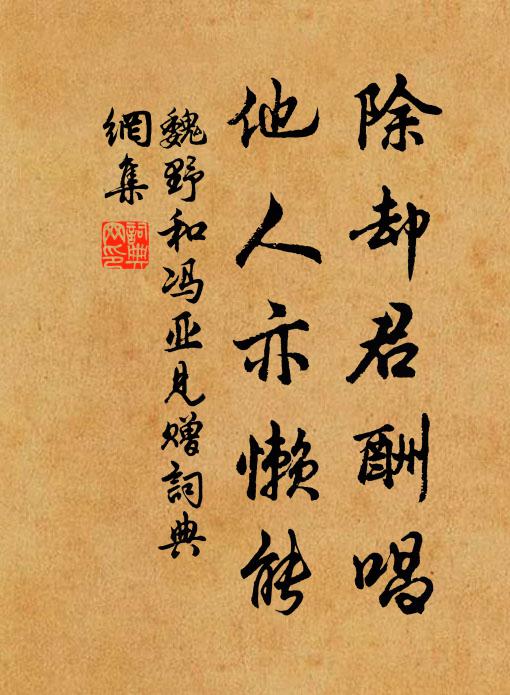 除却君酬唱
他人亦懒能
魏野和冯亚见赠詞典
網集
詞典
网印